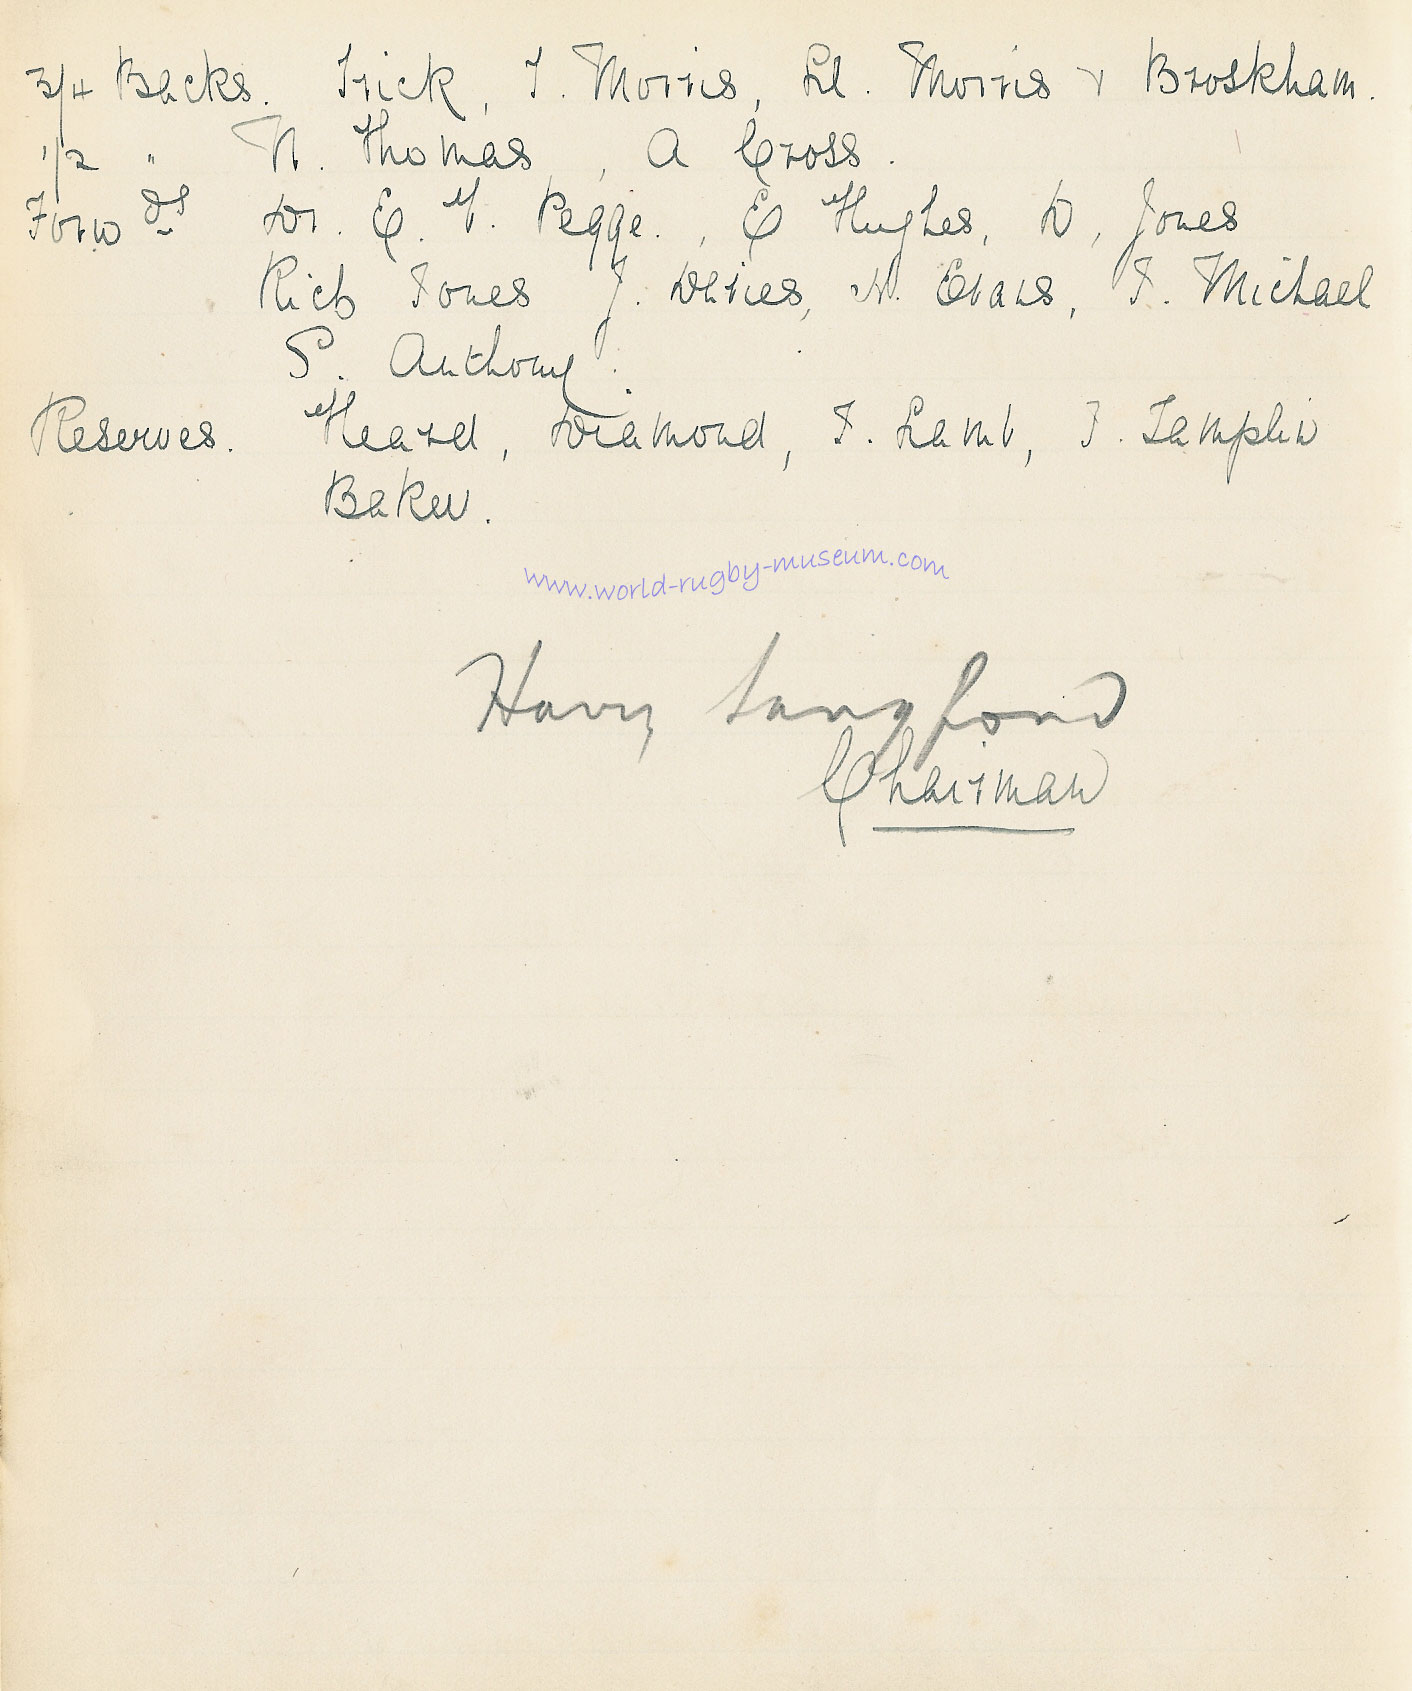 3/4 Backs. Trick, T. Morris, Ll. Morris & Broskham.
1/2 " W. Thomas, A Cross.
Forwds Dr. E. V. Pegge., E Hughes, D, Jones
Rich Jones J. Davies, W. Evans, T. Michael
S. Anthony.
Reserves. Heard, Diamond, T. Lamb, T. Tamplin
Baker.
www.world-rugby-museum.com
Harry Langford
Chairman